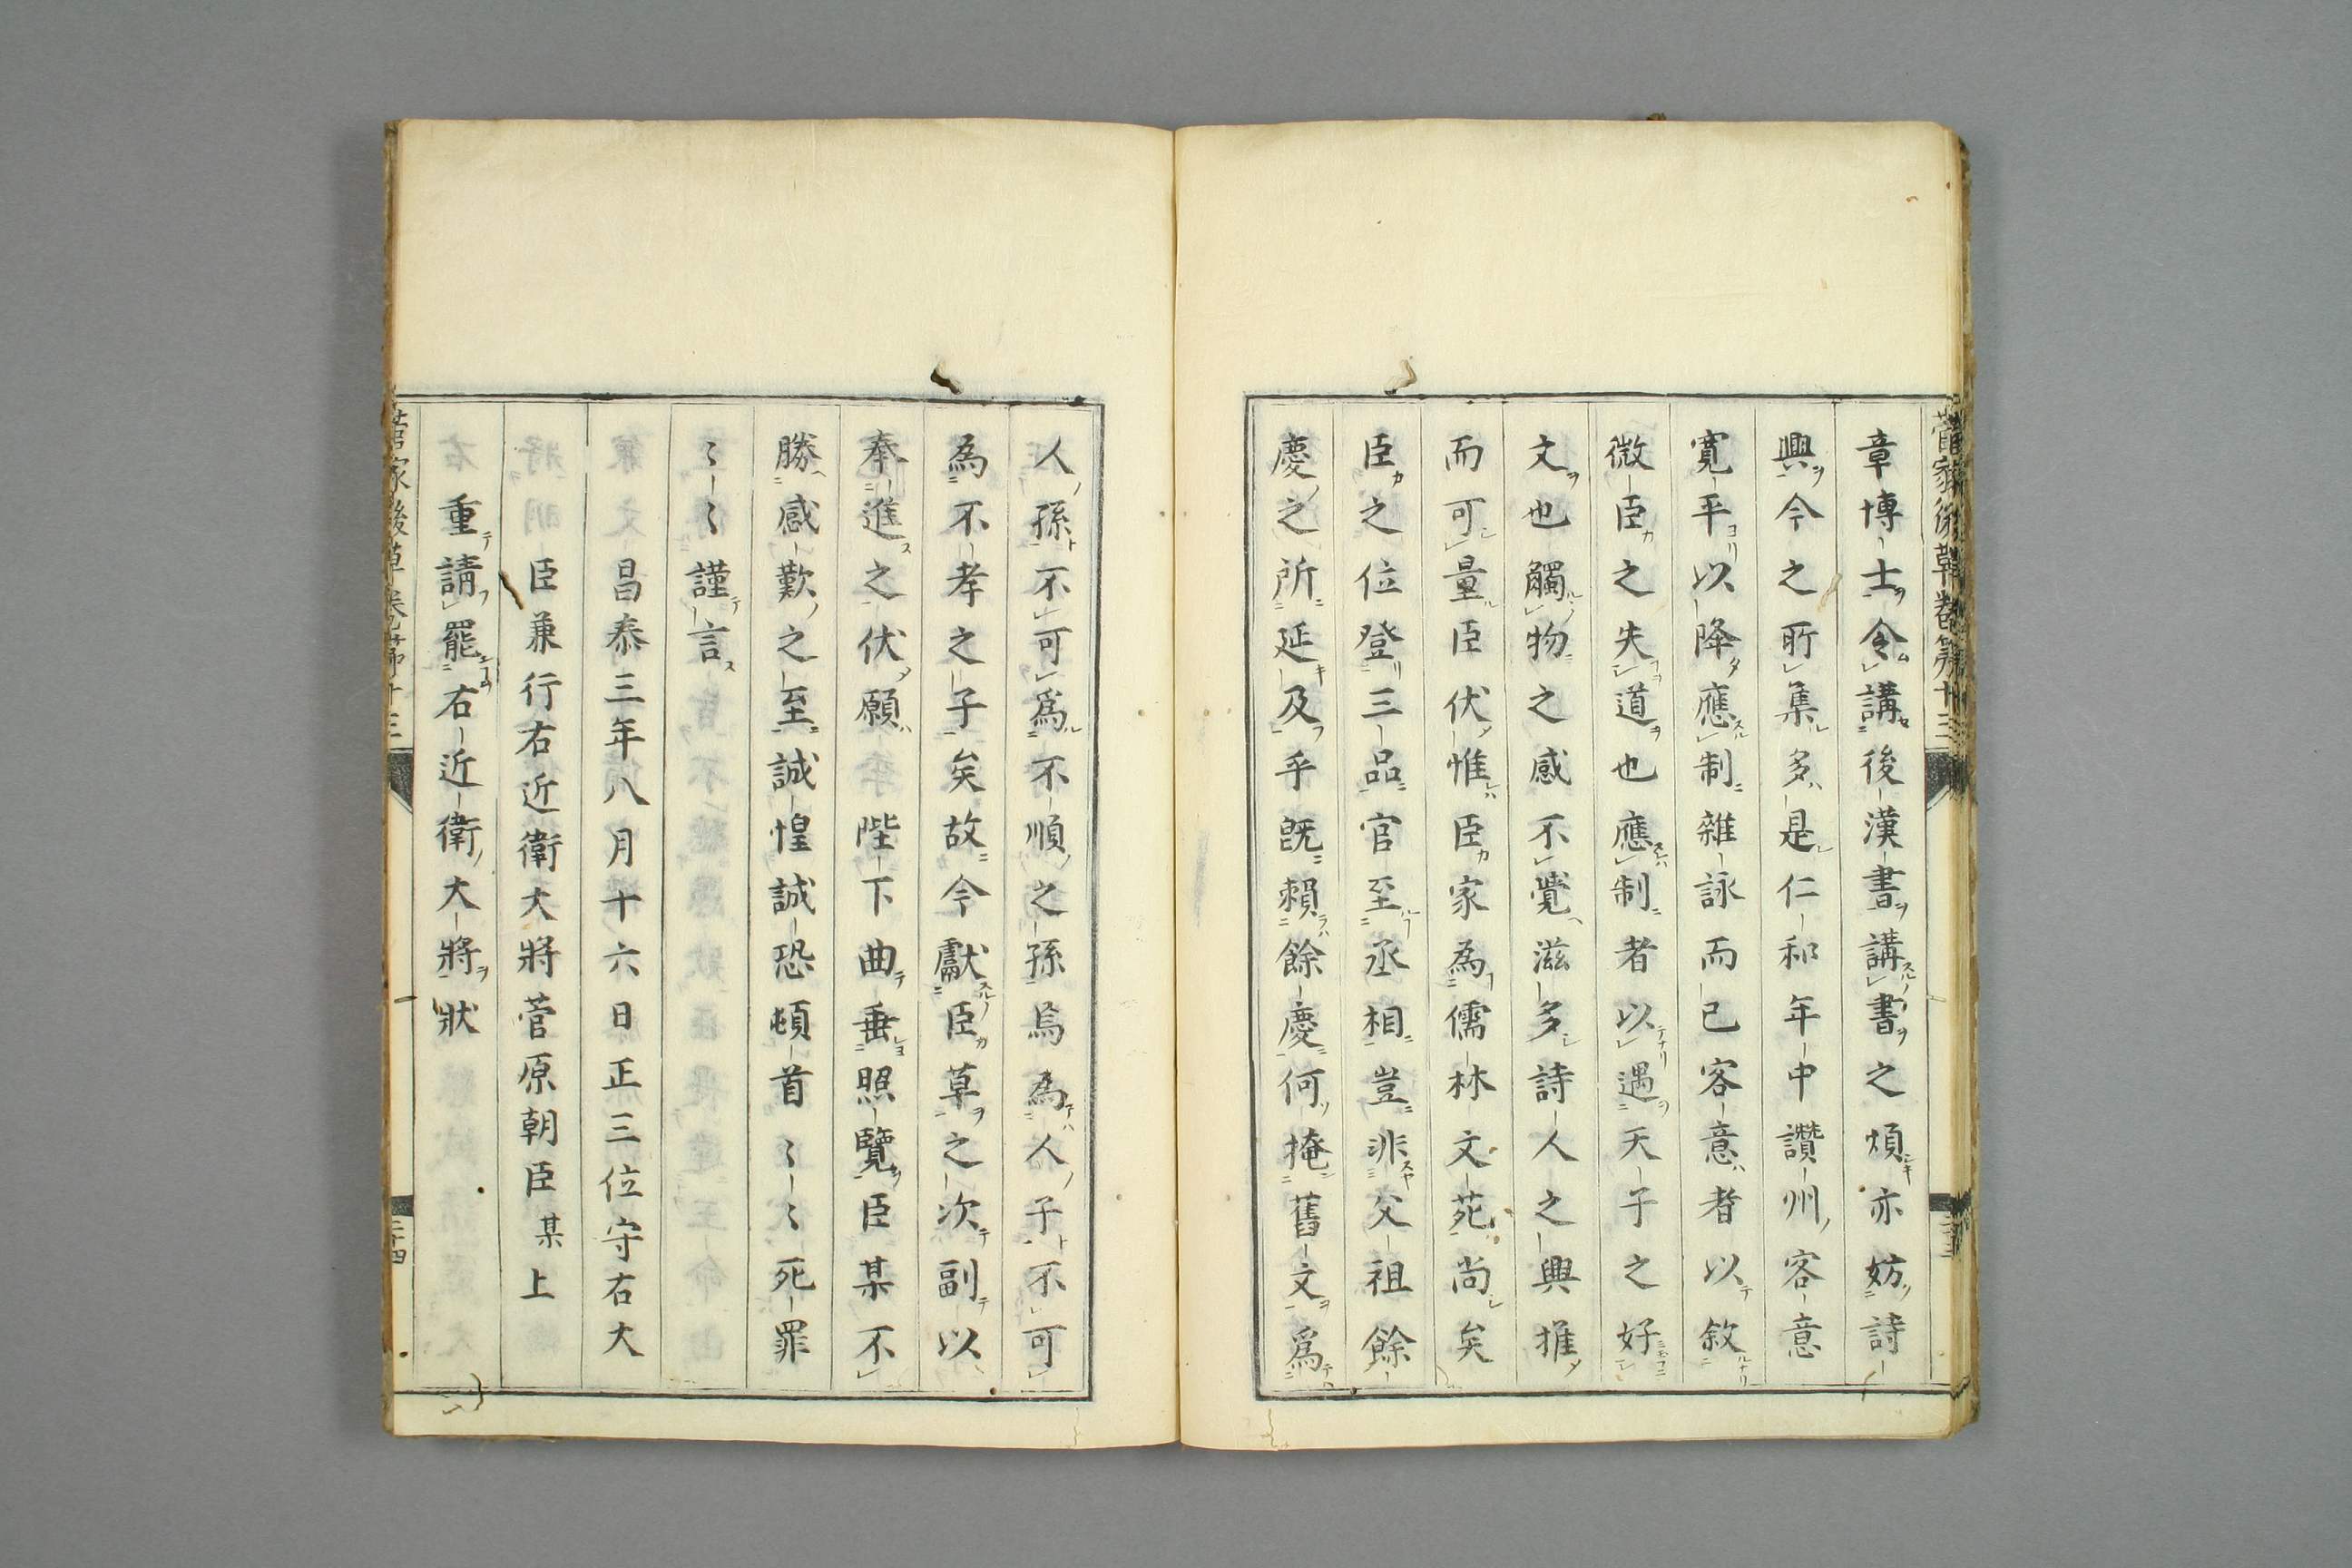 章博士令講後漢書講書之煩亦妨詩
興今之所集多是仁和年中讚州客意
寛平以降應制雜詠而已客意者以敘
微臣之失道也應制者以遇天子之好
文也觸物之感不覺滋多詩人之興推
而可量臣伏惟臣家為儒林文苑尚矣
臣之位登三品官至丞相豈非父祖餘
慶之所延及乎既頼餘慶何掩舊文爲
人孫不可爲不順之孫爲人子不可
為不孝之子矣故今獻臣草之次副以
奉進之伏願陛下曲垂照覽臣某不
勝感歎之至誠惶誠恐頓首〻〻死罪
〻〻謹言
昌泰三年八月十六日正三位守右大
臣兼行右近衛大將菅原朝臣某上
重請罷右近衛大將狀
菅家後草卷第十三
二十四